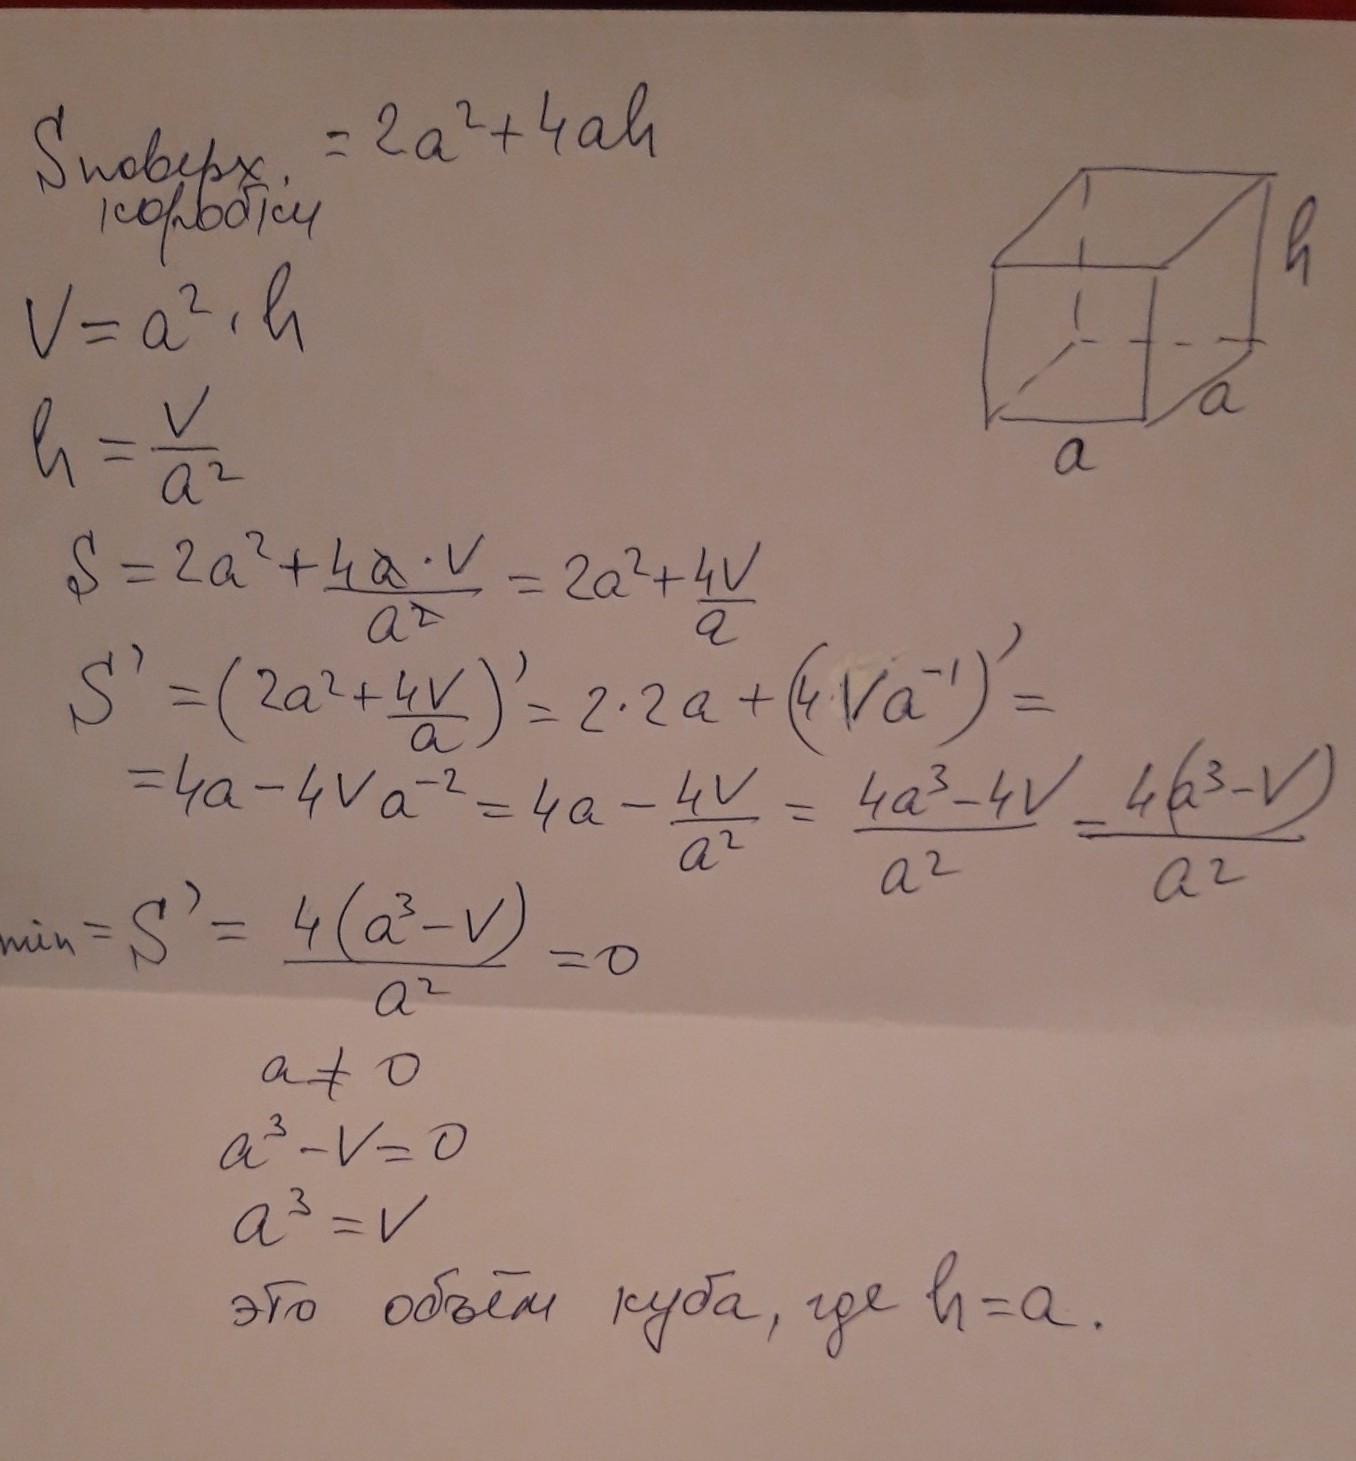 Sповерх. = 2a² + 4ah
коробки
V = a² · h
h = V/a²
S = 2a² + 4a · V/a² = 2a² + 4V/a
S' = (2a² + 4V/a)' = 2 · 2a + (4Va⁻¹)' =
= 4a − 4Va⁻² = 4a − 4V/a² = 4a³ − 4V/a² = 4(a³ − V)/a²
min = S' = 4(a³ − V)/a² = 0
a ≠ 0
a³ − V = 0
a³ = V
это объём куба, где h = a.
h
a
a